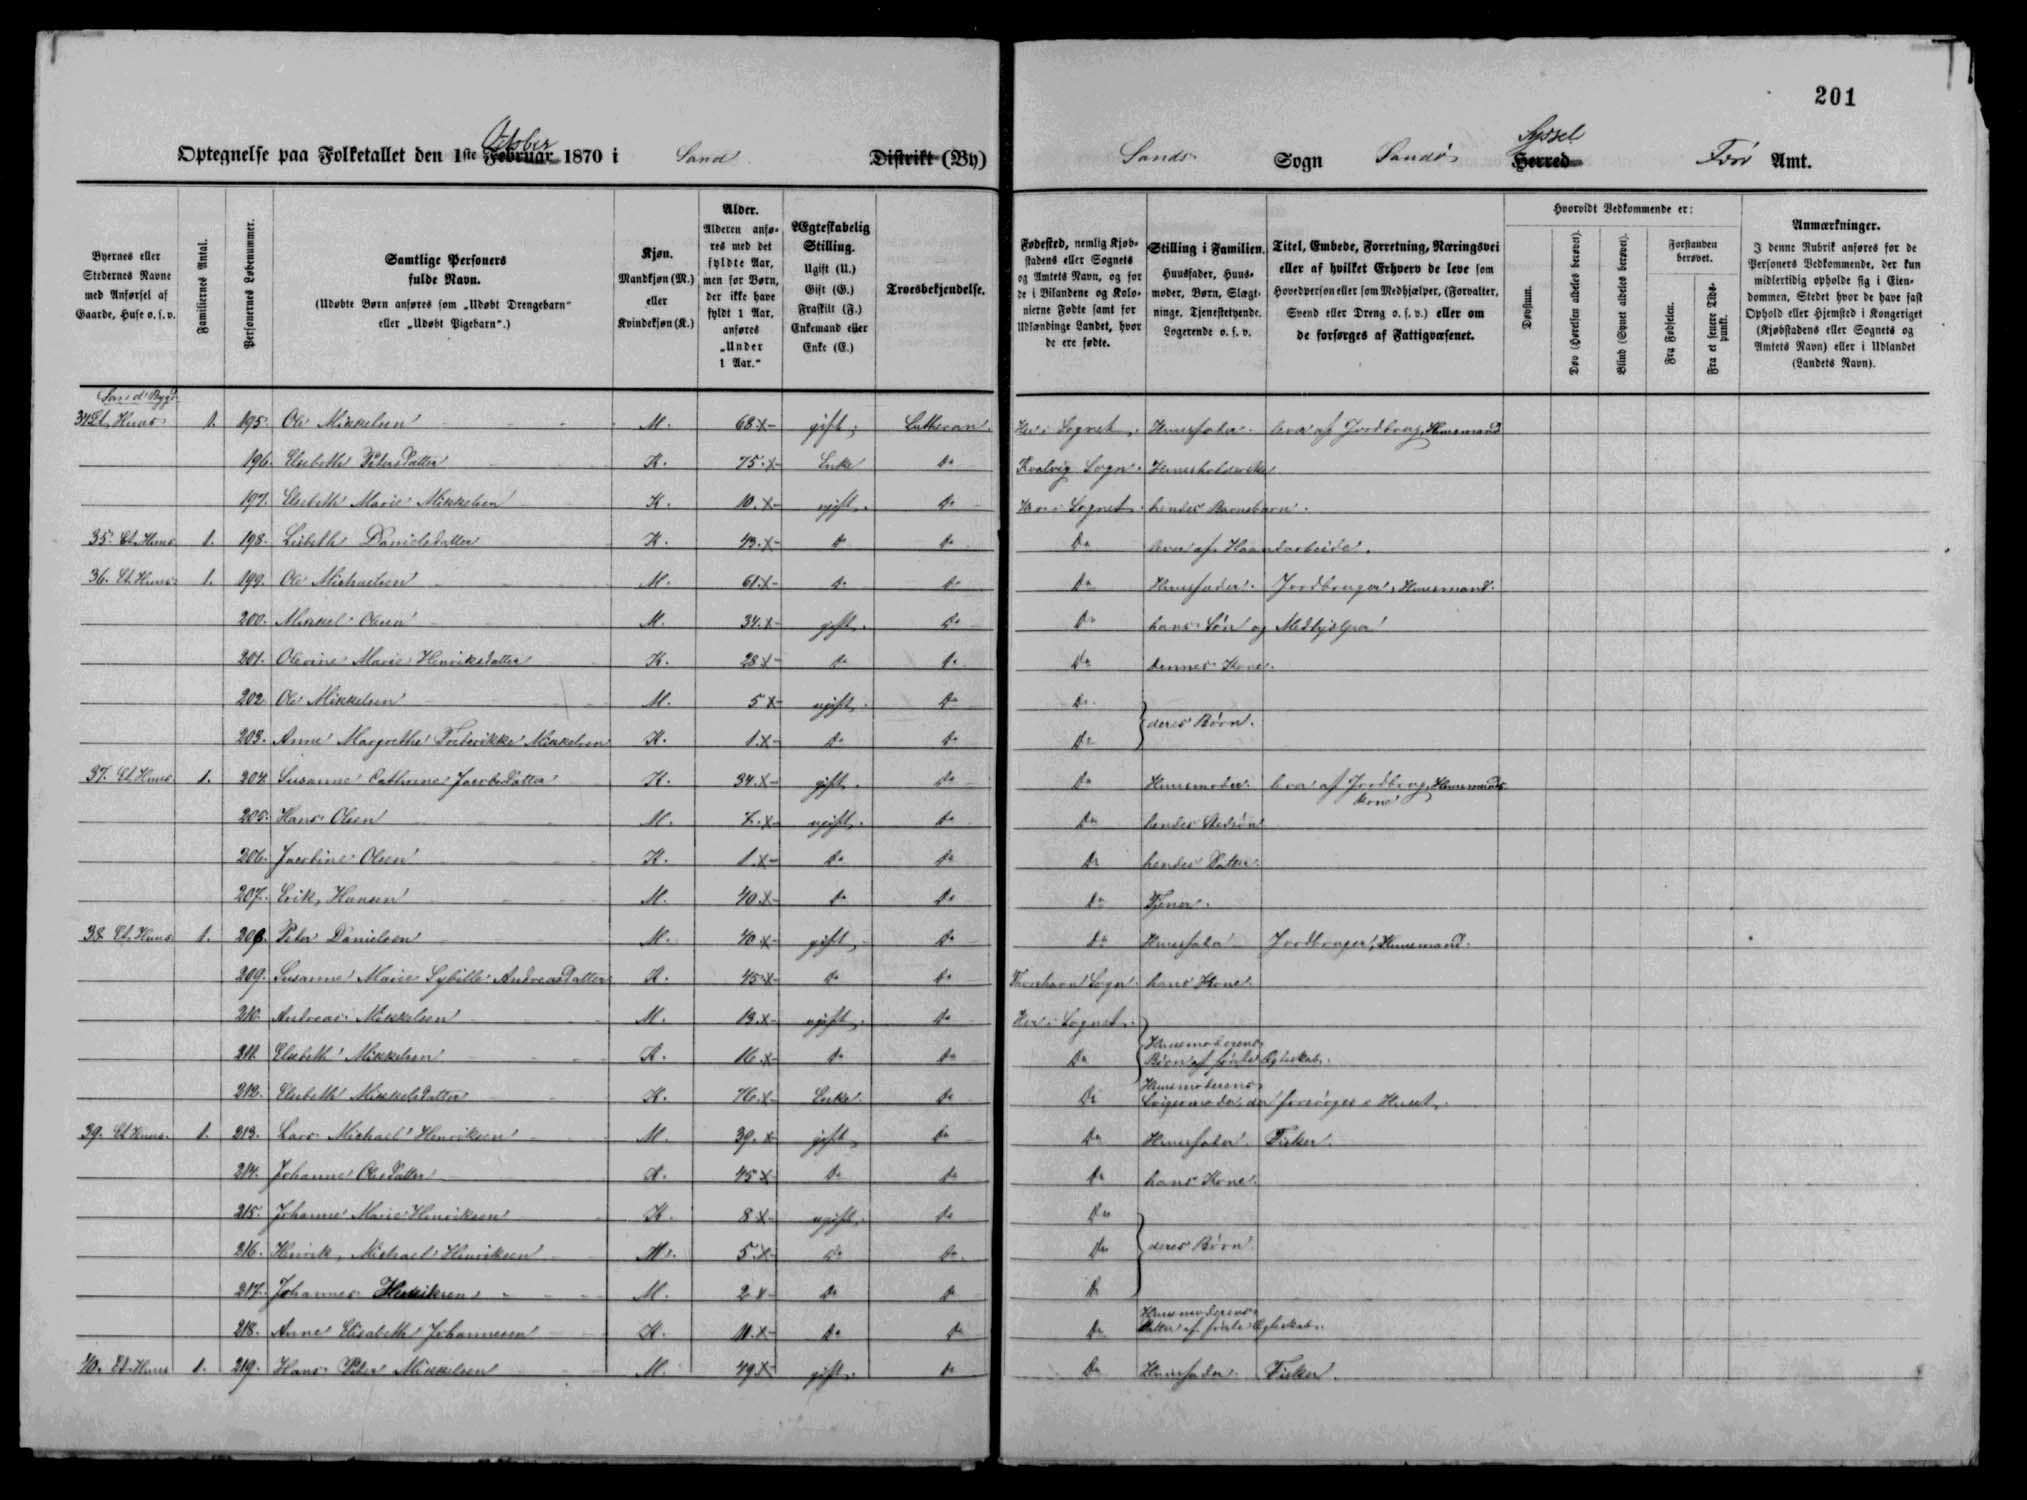 201
Optegnelse paa Folketallet den 1ste October Februar 1870 i Sand Distrikt (By) Sands Sogn Sandø Syssel Herred Færø Amt.
Byernes eller Stedernes Navne med Anførsel af Gaarde, Huse o. s. v.
Familiernes Antal.
Personernes Løbenummer.
Samtlige Personers fulde Navn.
(Udøbte Børn anføres som „Udøbt Drengebarn“ eller „Udøbt Pigebarn“.)
Kjøn.
Mandkjøn (M.) eller Kvindekjøn (K.)
Alder.
Alderen anføres med det fyldte Aar, men for Børn, der ikke have fyldt 1 Aar, anføres „Under 1 Aar.“
Ægteskabelig Stilling.
Ugift (U.) Gift (G.) Fraskilt (F.) Enkemand eller Enke (E.)
Troesbekjendelse.
Fødested, nemlig Kjøbstadens eller Sognets og Amtets Navn, og for de i Bilandene og Kolonierne Fødte samt for Udlændinge Landet, hvor de ere fødte.
Stilling i Familien.
Huusfader, Huusmoder, Børn, Slægtninge, Tjenestetyende, Logerende o. s. v.
Titel, Embede, Forretning, Næringsvei eller af hvilket Erhverv de leve som Hovedperson eller som Medhjælper, (Forvalter, Svend eller Dreng o. s. v.) eller om de forsørges af Fattigvæsenet.
Hvorvidt Vedkommende er:
Døvstum.
Døv (Hørelsen aldeles berøvet).
Blind (Synet aldeles berøvet).
Forstanden berøvet.
Fra Fødselen.
Fra et senere Tidspunkt.
Anmærkninger.
I denne Rubrik anføres for de Personers Vedkommende, der kun midlertidig opholde sig i Eiendommen, Stedet hvor de have fast Ophold eller Hjemsted i Kongeriget (Kjøbstadens eller Sognets og Amtets Navn) eller i Udlandet (Landets Navn).
Sand Bygd
34 Et Huus 1. 195. Ole Mikkelsen M. 68 x gift, Lutheran. Her i Sognet. Huusfader. lever af Jordbrug, Huusmand
196. Elsbeth Petersdatter K. 75 x Enke Do Kvalvig Sogn.
197. Elsebeth Marie Mikkelsen K. 10. x ugift. Do Her i Sognet. hendes Barnebarn.
35. Et Huus 1. 198. Lisbeth Danielsdatter K. 43. x Do Do Do lever af Haandarbeide.
36. Et Huus 1. 199. Ole Michaelsen M. 61. x Do Do Do Huusfader. Jordbruger, Huusmand.
200. Mikkel Olsen M. 34. x gift. Do Do hans Søn og Medhjælper
201. Olevine Marie Henriksdatter K. 28 x Do Do Do dennes Kone.
202 Ole Mikkelsen M. 5 x ugift. Do Do
deres Børn.
203. Anne Margrethe Frederikke Mikkelsen K. 1. x Do Do Do
37. Et Huus 1. 204 Susanne Cathrine Jacobsdatter K. 34. x gift. Do Do Huusmoder. lever af Jordbrug, Huusmands Kone
205. Hans Olsen M. 7. x ugift. Do Do hendes Stedsøn
206. Jacobine Olsen K. 1. x Do Do Do hendes Datter.
207. Erik Hansen M. 40. x Do Do Do Tjener.
38 Et Huus 1. 208. Peter Danielsen M. 40 x gift, Do Do Huusfader Jordbruger, Huusmand.
209. Susanne Marie Sybille Andreasdatter K. 45 x Do Do Thorshavn Sogn. hans Kone.
210. Andreas Mikkelsen M. 13. x ugift, Do Her i Sognet.
211. Elsebeth Mikkelsen K. 16. x Do Do Do Huusmoderens Børn af første Ægteskab.
212. Elsebeth Mikkelsdatter K. 76. x Enke. Do Do Huusmoderens Svigermoder, der forsørges i Huset.
39. Et Huus. 1. 213. Lars Michael Henriksen M. 39. x gift, Do Do Huusfader. Fisker.
214. Johanne Olesdatter K. 45 x Do Do Do hans Kone.
215. Johanne Marie Henriksen K. 8 x ugift. Do Do
216. Henrik Michael Henriksen M. 5. x Do Do. Do deres Børn
217. Johannes Henriksen M. 2 x Do Do Do
218. Anne Elisabeth Johannesen K. 11. x Do Do Do Huusmoderens Datter af første Ægteskab.
40. Et Huus 1. 219. Hans Peter Mikkelsen M. 49 x gift. Do Do Huusfader. Fisker.